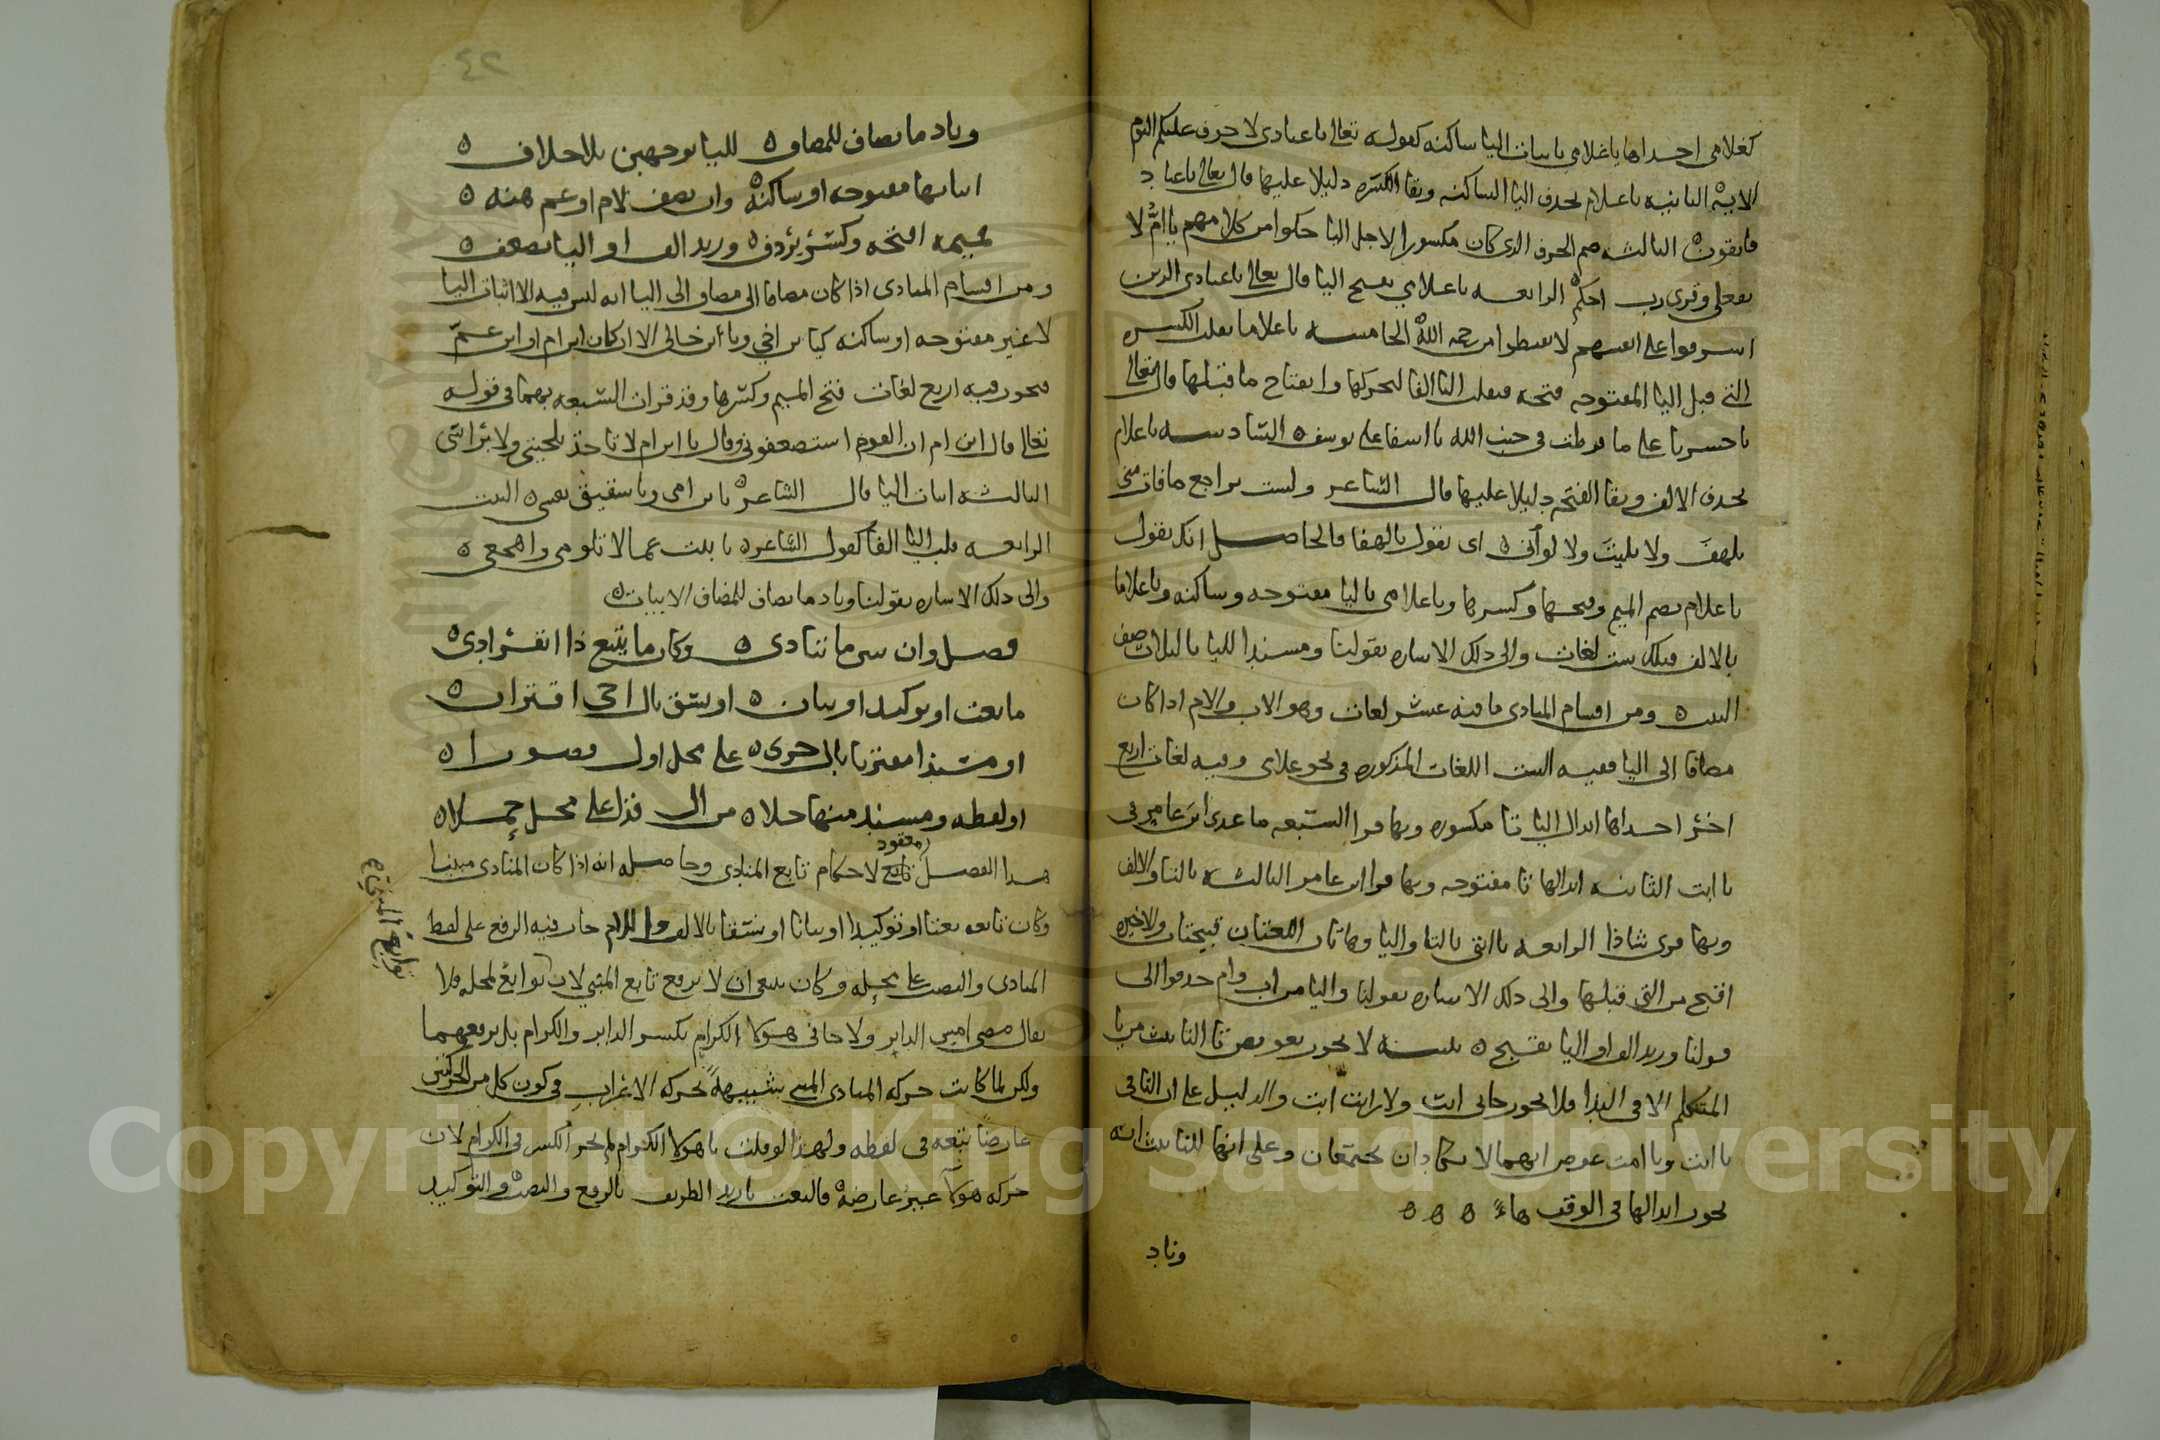 كغلامي احداها يا غلامي باثبات اليا ساكنه كقوله تعالى يا عبادي لا خوف عليكم اليوم
الاية الثانيه يا غلام بحذف اليا الساكنه وبقا الكسره دليلا عليها قال تعالى يا عباد
فاتقون الثالثه ضم الحرف الذي كان مكسورا لاجل اليا حكوا من كلامهم يا ام لا
تفعلي وقرى رب احكم الرابعه يا غلامي بفتح اليا قال تعالى يا عبادي الذين
اسرفوا على انفسهم لا تقنطوا من رحمة الله الخامسه يا غلاما بقلب الكسره
التي قبل اليا المفتوحه فتحه فتقلب اليا الفا لتحركها وانفتاح ما قبلها قال تعالى
يا حسرتا على ما فرطت في جنب الله يا اسفا على يوسف السادسه يا غلام
بحذف الالف وبقا الفتحه دليلا عليها قال الشاعر ولست براجع ما فات مني
بلهف ولا بليت ولا لو اني اي بقول يا لهفا فالحاصل انك تقول
يا غلام بضم الميم وفتحها وكسرها ويا غلامي باليا مفتوحه وساكنه ويا غلاما
بالالف فتلك ست لغات والى ذلك الاشاره بقولنا ومسندا لليا بالثلاث صف
البيت ومن اقسام المنادى ما فيه عشر لغات وهو الاب والام اذا كان
مضافا الى اليا ففيه الست اللغات المذكوره في نحو غلامي وفيه لغات اربع
اخر احداها ابدال اليا تا مكسوره وبها قرا السبعه ما عدى ابن عامر في
يا ابت الثانيه ابدالها تا مفتوحه وبها قرا ابن عامر الثالثه بالتا والالف
وبها قرى شاذا الرابعه يا ابتي بالتا واليا وهاتان اللغتان قبيحتان والاخيره
اقبح من التي قبلها والى ذلك الاشاره بقولنا واليا من اب وام حذفوا الى
قولنا وزيد الف او اليا بقبح تنبيه لا يجوز تعويض تا التانيث من يا
المتكلم الا في الندا فلا يجوز جاني ابت ولا رايت ابت والدليل على ان التا في
يا ابت ويا امت عوض انهما لا يكادان يجتمعان وعلى انها للتانيث انه
يجوز ابدالها في الوقف هاء
وناد
٤٢
وناد ما يضاف للمضاف لليا بوجهين بلا خلاف
اثباتها مفتوحه او ساكنه وان يضف لام او عم هنه
لميمه افتحه وكسر يردف وزيد الف او اليا بضعف
ومن اقسام المنادى اذا كان مضافا الى مضاف الى اليا انه ليس فيه الا اثبات اليا
لا غير مفتوحه او ساكنه كيا بن اخي ويا ابن خالي الا ان كان ابن ام او ابن عم
فيجوز فيه اربع لغات فتح الميم وكسرها وقد قرات السبعه بهما في قوله
تعالى قال ابن ام ان القوم استضعفوني وقال يا ابن ام لا تاخذ بلحيتي ولا براسي
الثالثه اثبات اليا قال الشاعر يا بن امي ويا شقيق نفسي البيت
الرابعه قلب اليا الفا كقول الشاعر يا بنت عما لا تلومي واهجعي
والى ذلك الاشاره بقولنا وناد ما يضاف للمضاف الابيات
فصل وان بني ما تنادى وكان ما يتبع ذا انفرادي
ما نعت او توكيد او بيان او نسق بال اخي اقتران
او مسندا مقترنا بال حرى على محل اول قصورا
او لفظه ومسند منها خلا من ال فذا على محل حملا
هذا الفصل معقود لاحكام تابع المنادى وحاصله انه اذا كان المنادى مبنيا
وكان تابعه نعتا او توكيدا او بيانا او نسقا بالالف واللام جاز فيه الرفع على لفظ
المنادى والنصب على محله وكان ينبغي ان لا يرفع تابع المبني لان توابع لمحله فلا
يقال مضى امس الدابر ولا جاني هولا الكرام بكسر الدابر والكرام بل برفعهما
ولكن لما كانت حركه المنادى المبني شبيهة بحركه الاعراب في كون كل من الحركتين
عارضا تبعه في لفظه ولهذا لو قلت يا هولا الكرام لم يجز الكسر في الكرام لان
حركه هولا غير عارضة فالنعت يا زيد الظريف بالرفع والنصب والتوكيد
توابع المنادى